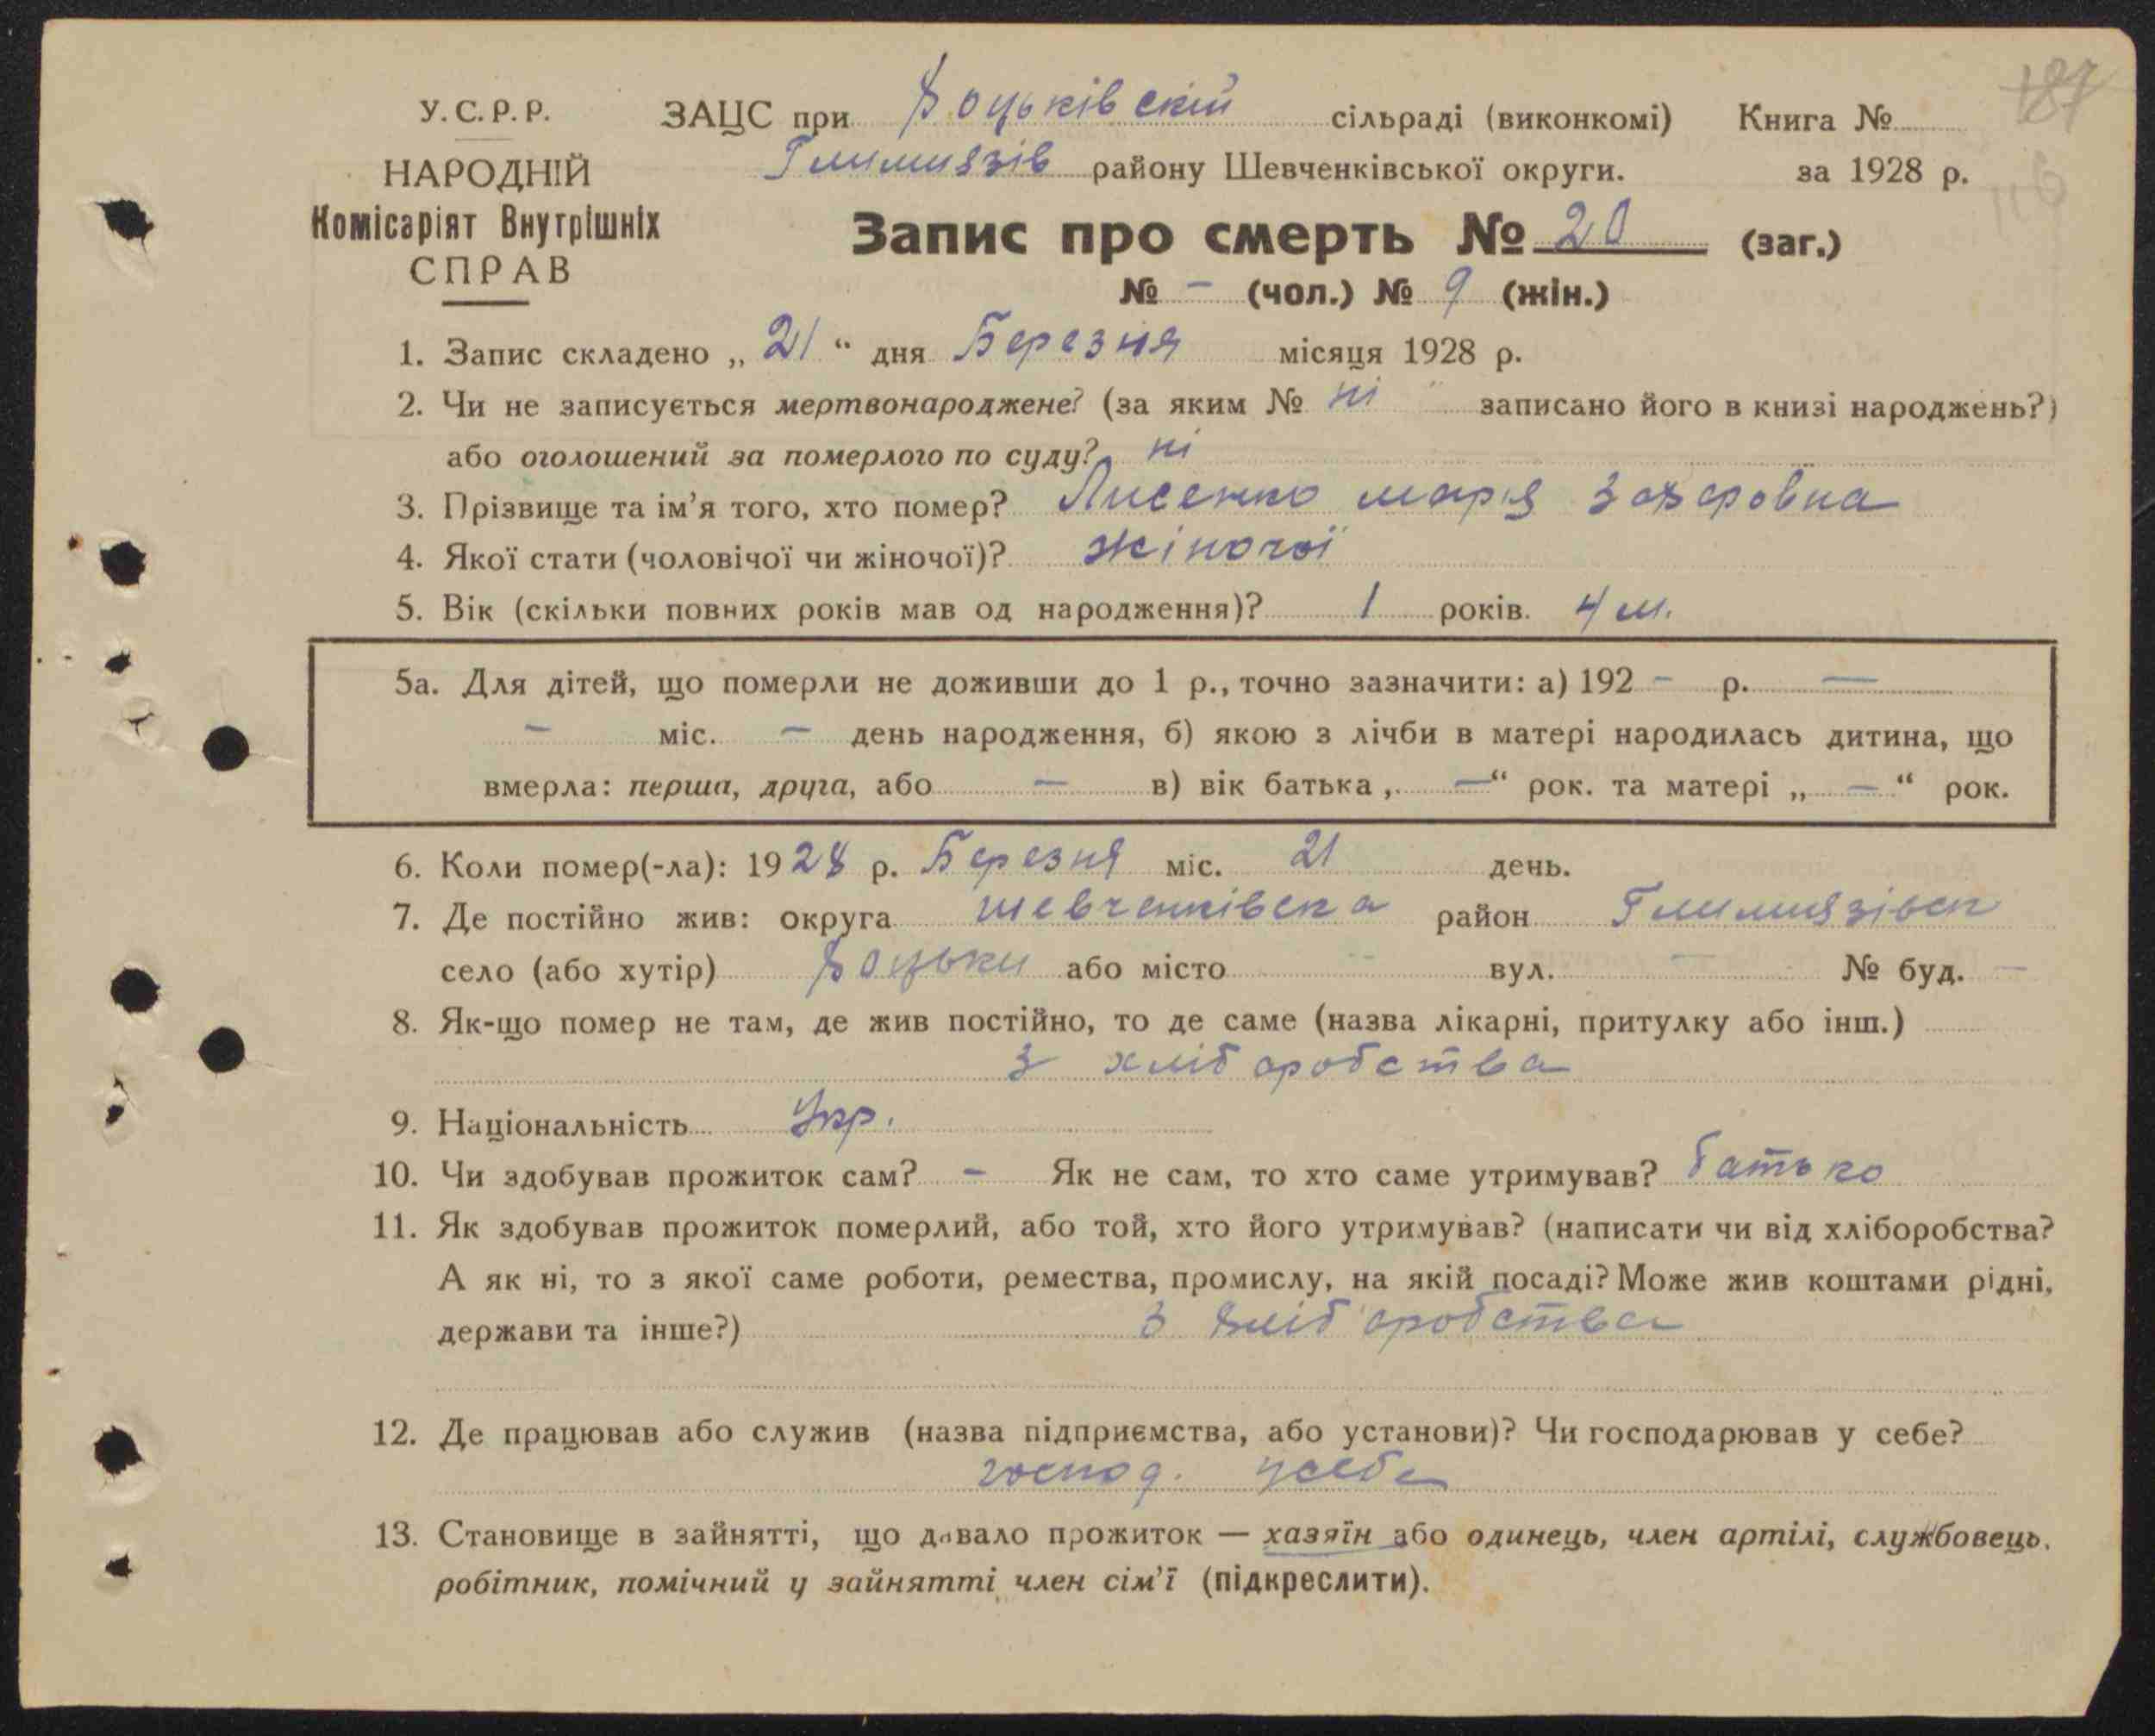 187
116
У.С.Р.Р.
НАРОДНІЙ
Комісаріят Внутрішніх
СПРАВ
ЗАЦС при Боцьківскій сільраді (виконкомі) Книга №
Гнимязів району Шевченківської округи. за 1928 р.
Запис про смерть № 20 (заг.)
№ - (чол.) № 9 (жін.)
1. Запис складено „ 21 “ дня Березня місяця 1928 р.
2. Чи не записується мертвонароджене? (за яким № ні записано його в книзі народжень?)
або оголошений за померлого по суду? ні
3. Прізвище та ім’я того, хто помер? Лисенко марія Захаровна
4. Якої стати (чоловічої чи жіночої)? жіночої
5. Вік (скільки повних років мав од народження)? 1 років. 4 м.
5а. Для дітей, що померли не доживши до 1 р., точно зазначити: а) 192 - р. —
- міс. - день народження, б) якою з лічби в матері народилась дитина, що
вмерла: перша, друга, або — в) вік батька „ — “ рок. та матері „ — “ рок.
6. Коли помер(-ла): 1928 р. Березня міс. 21 день.
7. Де постійно жив: округа шевченківска район Гнимязівск
село (або хутір) Боцьки або місто - вул. - № буд. -
8. Як-що помер не там, де жив постійно, то де саме (назва лікарні, притулку або інш.)
З хліборобства
9. Національність Укр.
10. Чи здобував прожиток сам? - Як не сам, то хто саме утримував? батько
11. Як здобував прожиток померлий, або той, хто його утримував? (написати чи від хліборобства?
А як ні, то з якої саме роботи, ремества, промислу, на якій посаді? Може жив коштами рідні,
держави та інше?) З хліборобства
12. Де працював або служив (назва підприємства, або установи)? Чи господарював у себе?
господ. усебе
13. Становище в зайнятті, що давало прожиток — хазяїн або одинець, член артілі, службовець,
робітник, помічний у зайнятті член сім’ї (підкреслити).